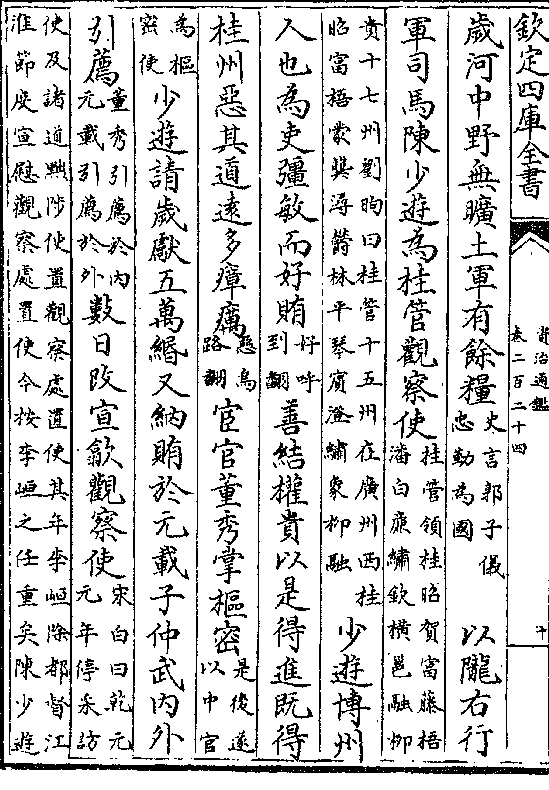 欽定四庫全書
資治通鑑
卷二百二十四
十
歲河中野無曠土軍有餘糧史言郭子儀忠勤為國 以隴右行
軍司馬陳少遊為桂管觀察使桂管領桂昭賀富藤梧潘白㢘繡欽橫邕融栁
貴十七州劉昫曰桂管十五州在廣州西桂昭富梧蒙龔潯鬱林平琴賓澄繡象栁融 少遊博州
人也為吏彊敏而好賄好呼到翻善結權貴以是得進既得
桂州惡其道遠多瘴癘惡烏路翻宦官董秀掌樞密是後遂以中官
為樞密使少遊請歲獻五萬緡又納賄於元載子仲武内外
引薦董秀引薦於内元載引薦於外數日改宣歙觀察使宋白曰乾元元年停采訪
使及諸道黜陟使置觀察處置使其年李峘除都督江淮節度宣慰觀察處置使今按李峘之任重矣陳少遊